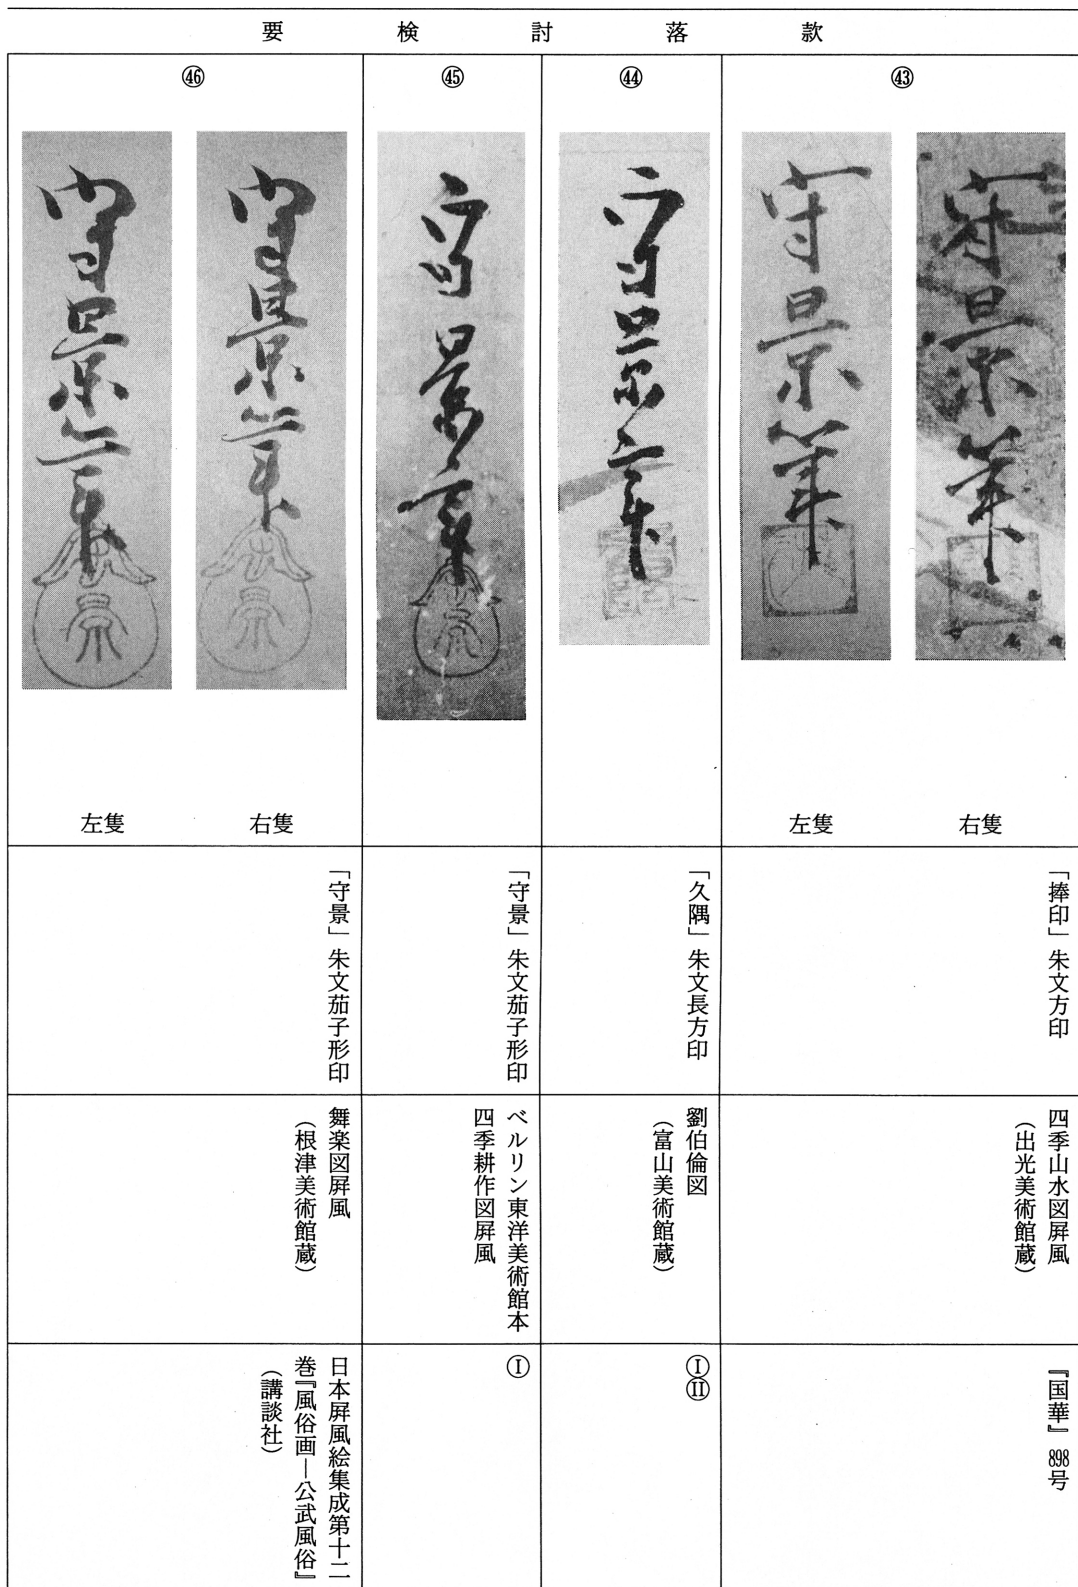 要検討落款
㊸
守景筆
守景筆
右隻
左隻
「捧印」朱文方印
四季山水図屏風
(出光美術館蔵)
『国華』898号
㊹
守景筆
「久隅」朱文長方印
劉伯倫図
(富山美術館蔵)
ⒾⅡ
㊺
守景筆
「守景」朱文茄子形印
ベルリン東洋美術館本
四季耕作図屏風
Ⓘ
㊻
守景筆
守景筆
右隻
左隻
「守景」朱文茄子形印
舞楽図屏風
(根津美術館蔵)
日本屏風絵集成第十二
巻『風俗画―公武風俗』
(講談社)